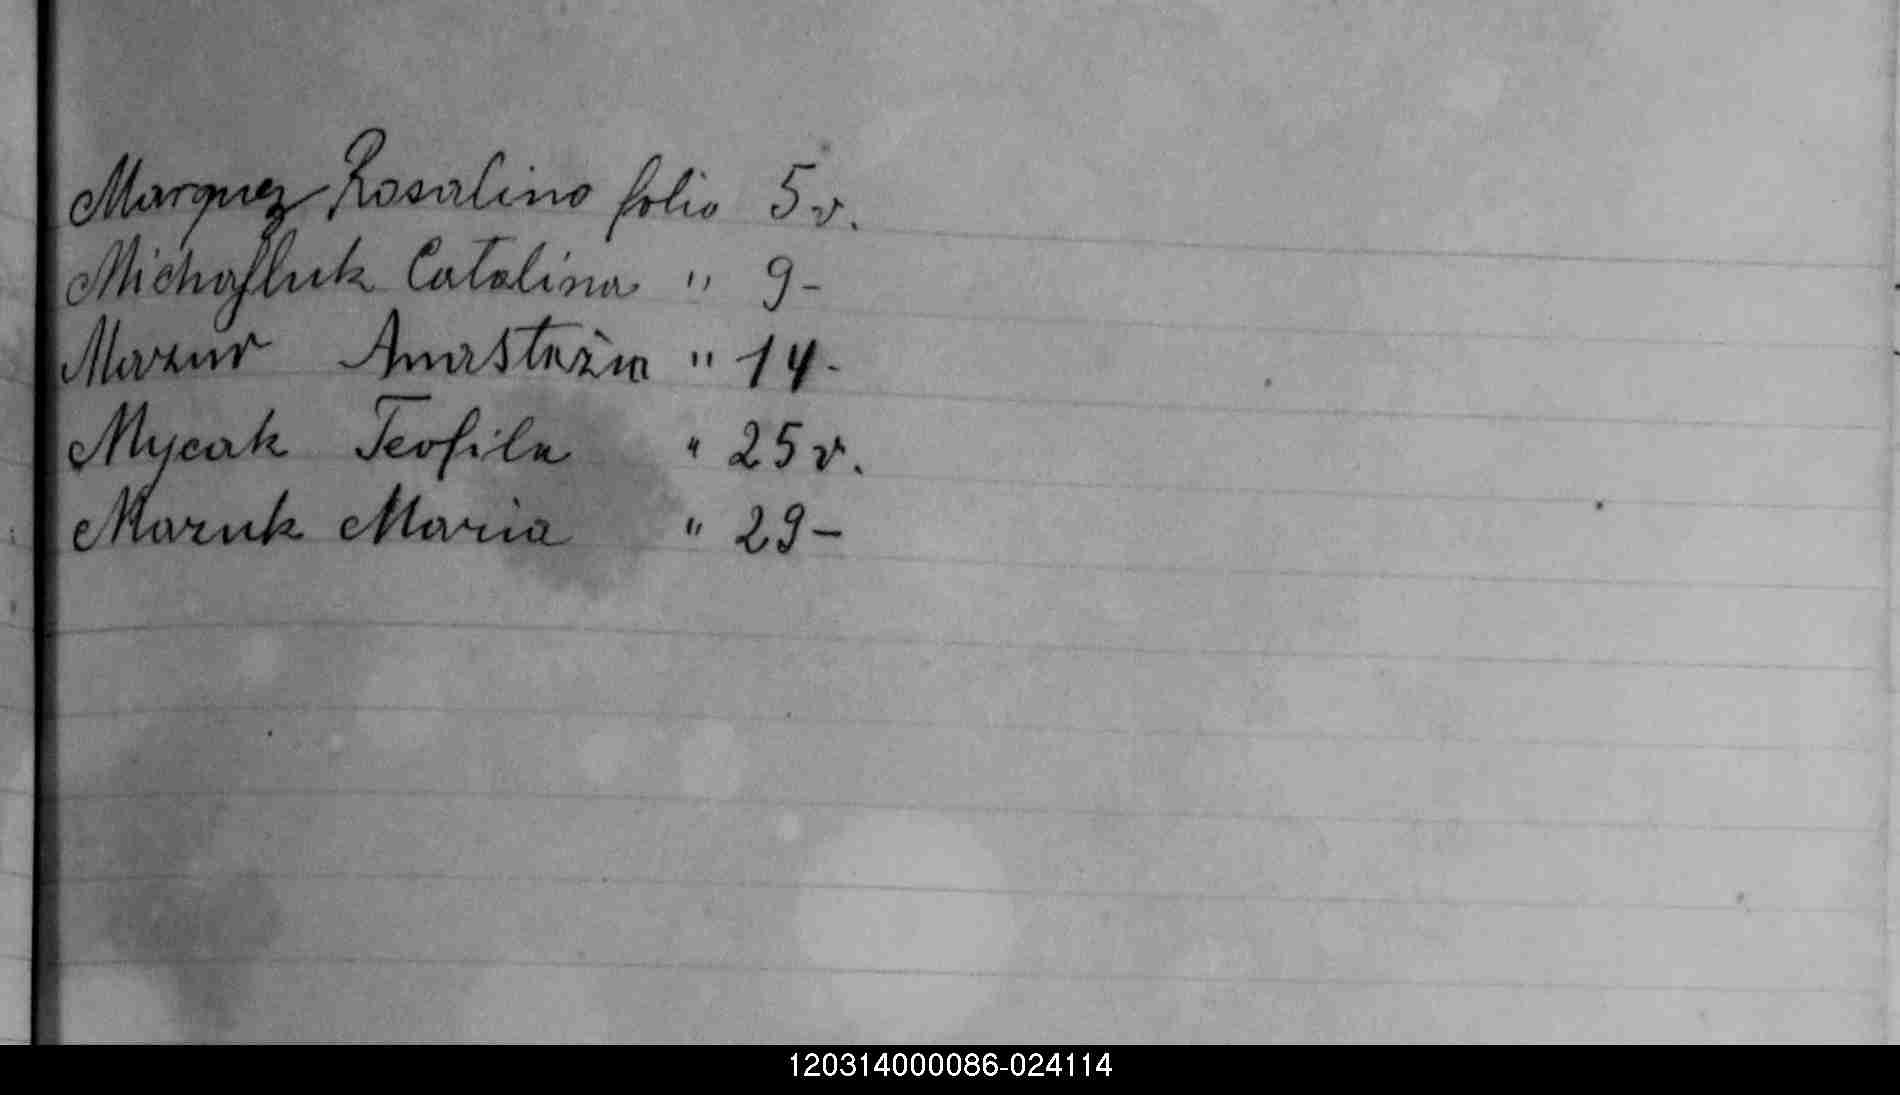 Marquez Rosalino folio 5v.
Michajluk Catalina " 9-
Mazur Anastazia " 14-
Mycak Teofila " 25v.
Mazuk Maria " 29-
120314000086-024114